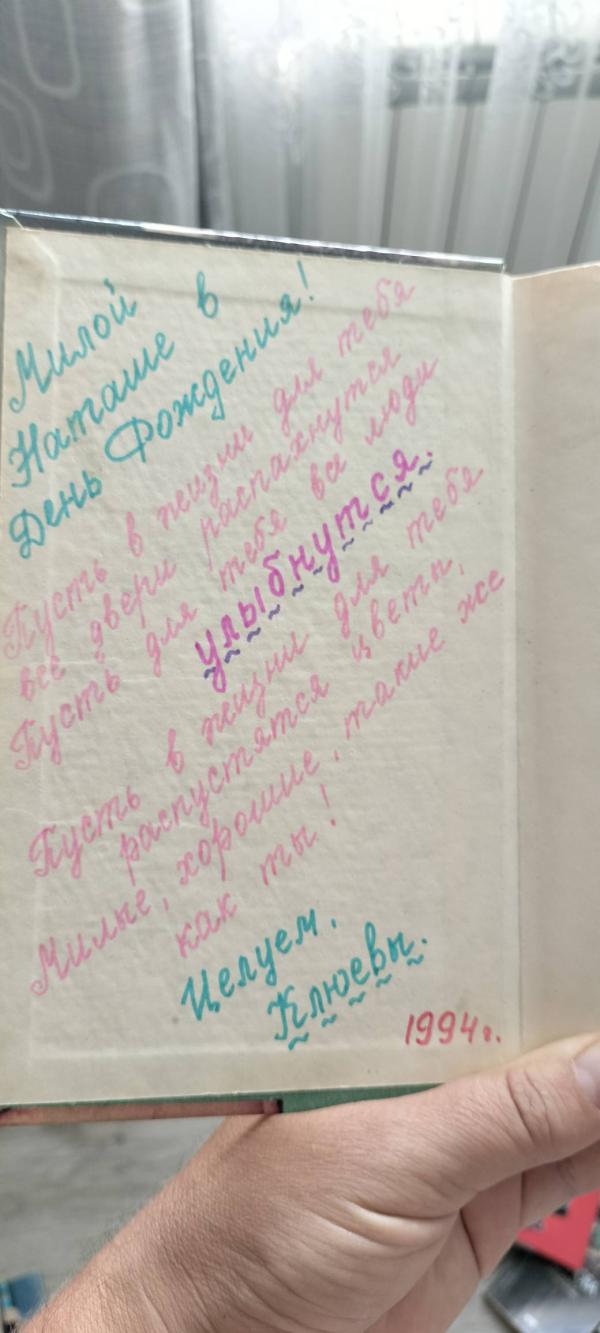 Милой
Наташе в
День Рождения!
Пусть в жизни для тебя
все двери распахнутся
Пусть для тебя все люди
улыбнутся.
Пусть в жизни для тебя
распустятся цветы,
Милые, хорошие, такие же
как ты!
Целуем.
Клюевы.
1994г.